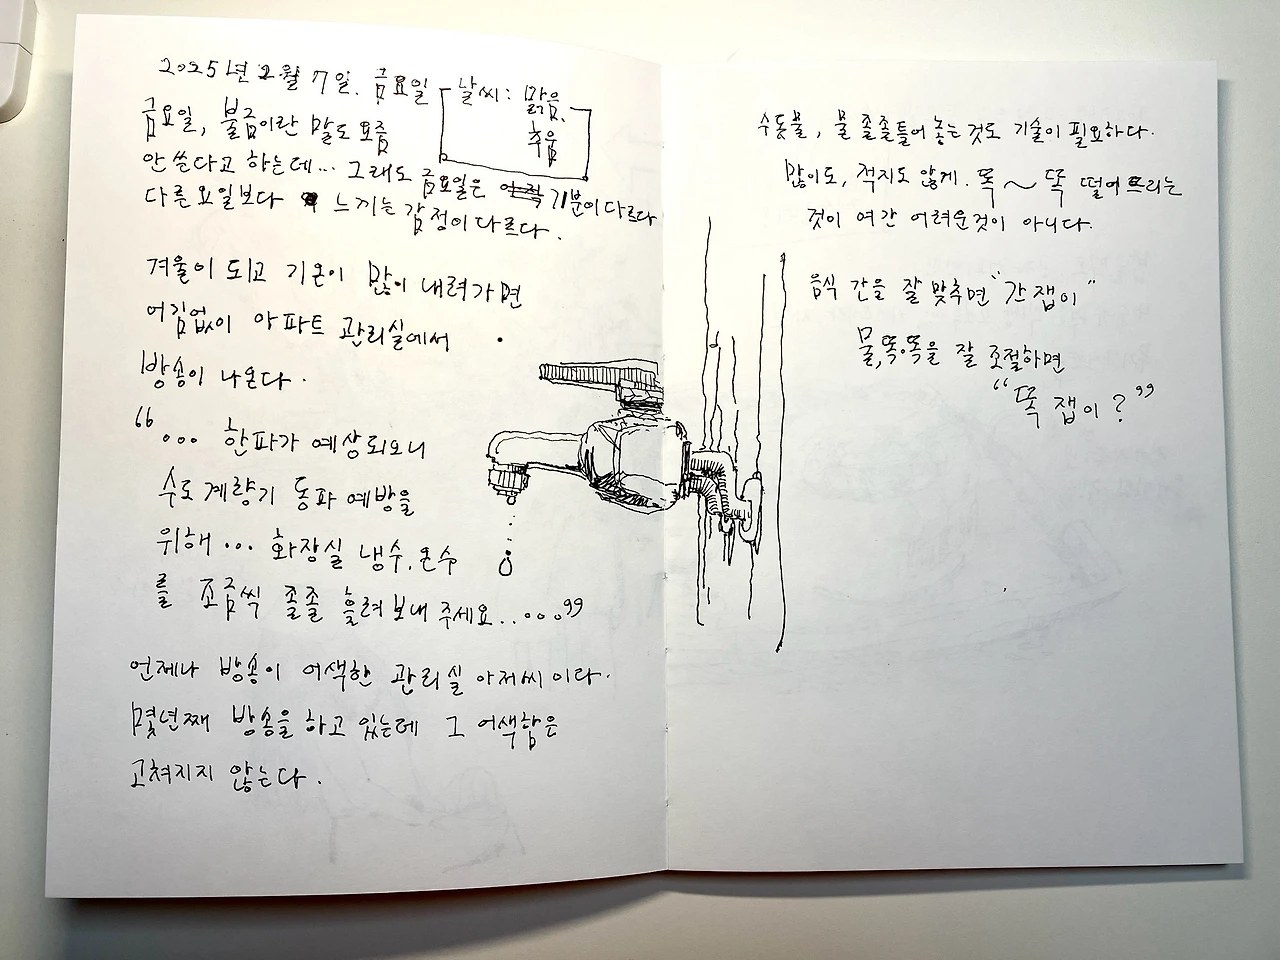 2025년 2월 7일. 금요일
날씨: 맑음.
추움
금요일, 불금이란 말도 요즘
안 쓴다고 하는데... 그래도 금요일은 기분이 다르다
다른 요일보다 느끼는 감정이 다르다.
겨울이 되고 기온이 많이 내려가면
어김없이 아파트 관리실에서
방송이 나온다.
"... 한파가 예상되오니
수도계량기 동파 예방을
위해... 화장실 냉수.온수
를 조금씩 졸졸 흘려보내 주세요....."
언제나 방송이 어색한 관리실 아저씨이다.
몇년째 방송을 하고 있는데 그 어색함은
고쳐지지 않는다.
수돗물, 물 졸졸틀어 놓는 것도 기술이 필요하다.
많이도, 적지도 않게. 똑~똑 떨어트리는
것이 여간 어려운것이 아니다.
음식 간을 잘 맞추면 "간잽이"
물,똑똑을 잘 조절하면
"똑잽이?"